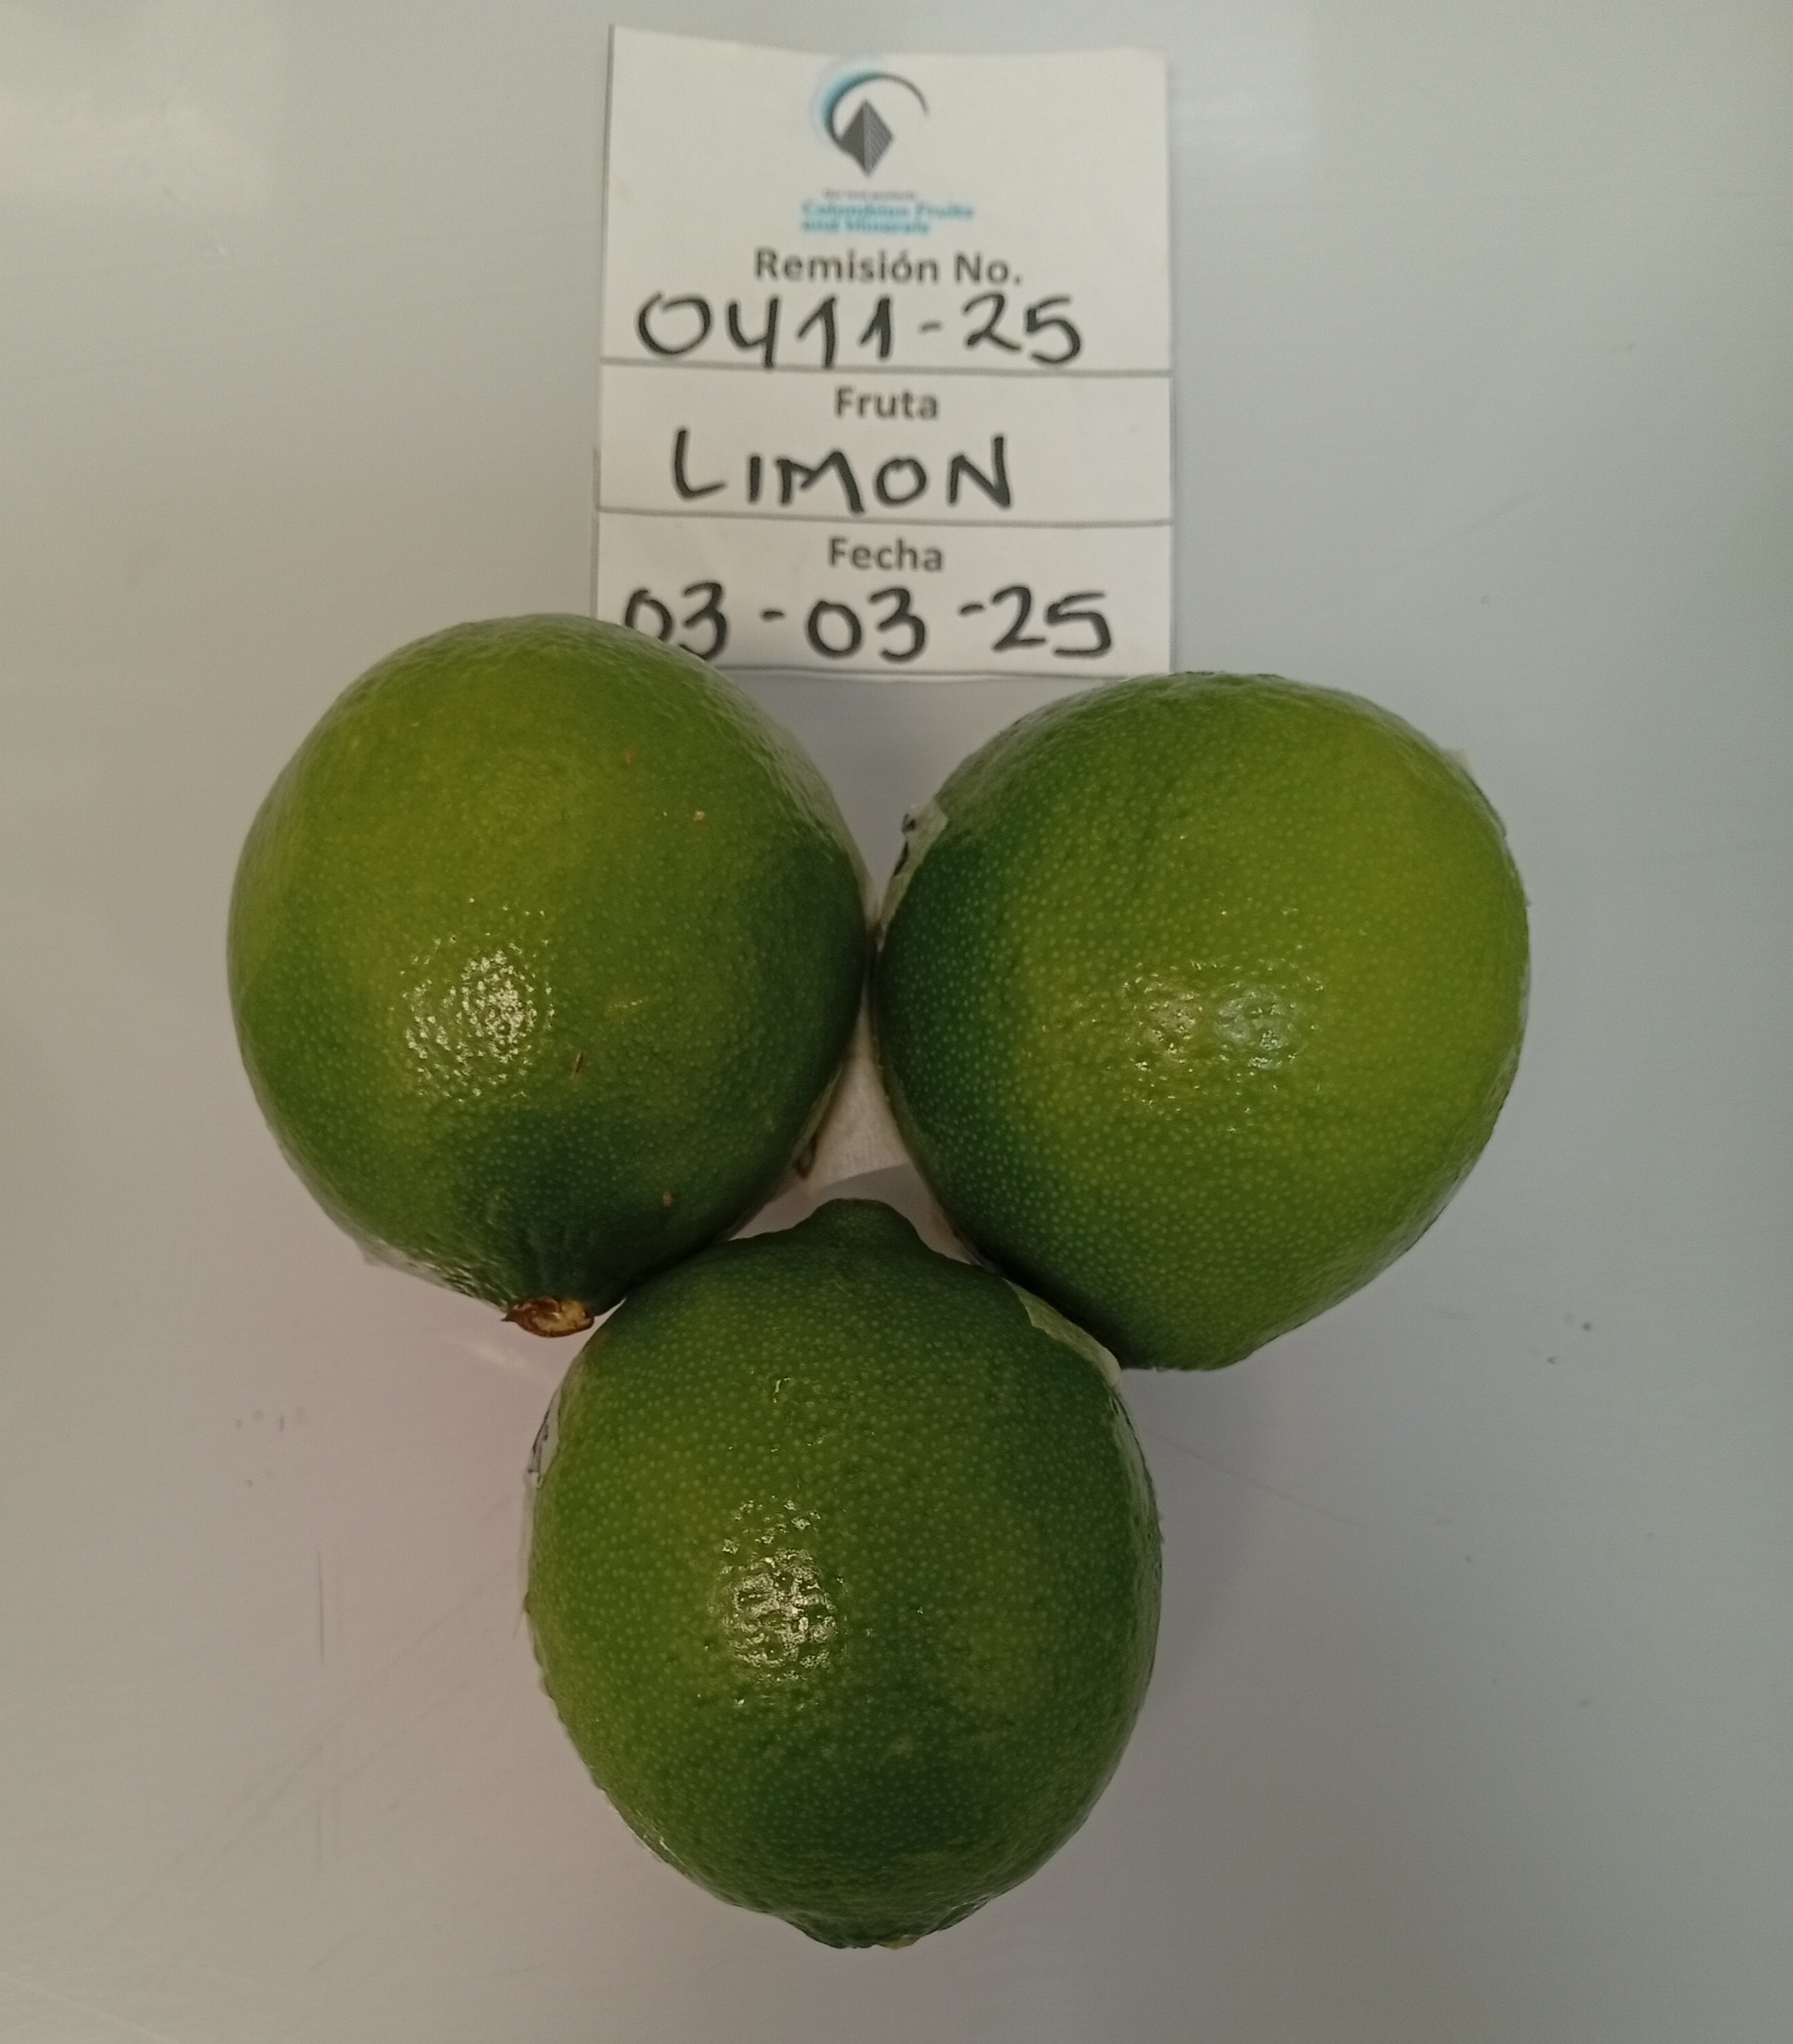 Colombian Fruits
and Minerals
Remisión No.
0411-25
Fruta
LIMON
Fecha
03-03-25